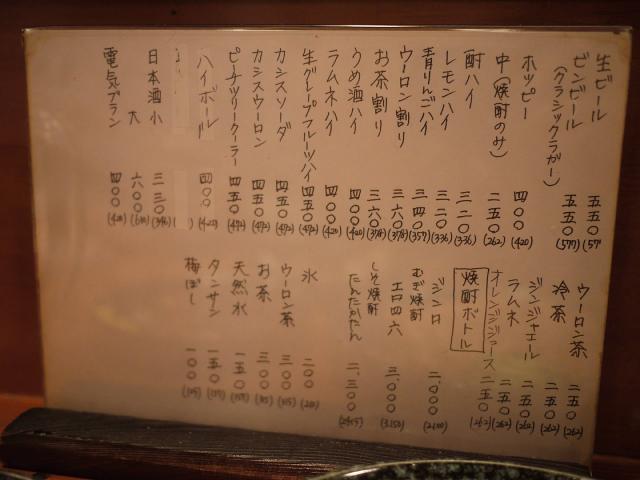 生ビール 五五〇 (57
ビンビール
(クラシックラガー) 五五〇 (577)
ホッピー 四〇〇 (420)
中(焼酎のみ) 二五〇 (262)
酎ハイ 三二〇 (336)
レモンハイ 三二〇 (336)
青りんごハイ 三四〇 (357)
ウーロン割り 三六〇 (378)
お茶割り 三六〇 (378)
うめ酒ハイ 四〇〇 (420)
ラムネハイ 四〇〇 (420)
生グレープフルーツハイ 四五〇 (472)
カシスソーダ 四五〇 (472)
カシスウーロン 四五〇 (472)
ピーチツリークーラー 四五〇 (472)
ハイボール 四〇〇 (420)
日本酒小 三三〇 (346)
大 六〇〇 (630)
電気ブラン 四〇〇 (420)
ウーロン茶 二五〇 (262)
冷茶 二五〇 (262)
ジンジャエール 二五〇 (262)
ラムネ 二五〇 (262)
オレンジジュース 二五〇 (262)
焼酎ボトル
ジンロ 二、〇〇〇 (2100)
むぎ焼酎
二口四六 三、〇〇〇 (3150)
しそ焼酎
たんたかたん 二、三〇〇 (2415)
氷 二〇〇 (210)
ウーロン茶 三〇〇 (315)
お茶 三〇〇 (315)
天然水 一五〇 (157)
タンサン 一五〇 (157)
梅ぼし 一〇〇 (105)